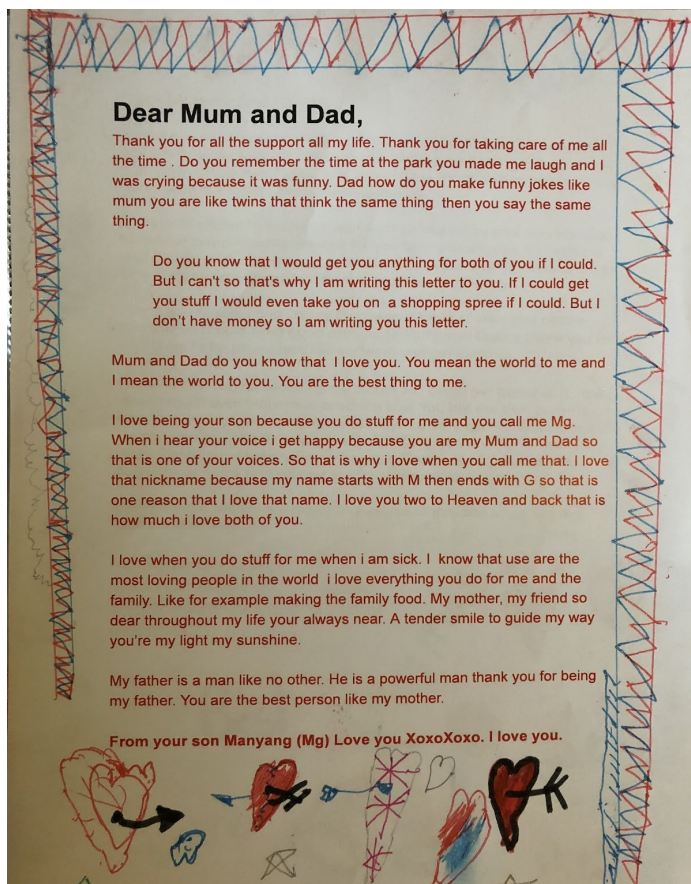 Dear Mum and Dad,
Thank you for all the support all my life. Thank you for taking care of me all
the time . Do you remember the time at the park you made me laugh and I
was crying because it was funny. Dad how do you make funny jokes like
mum you are like twins that think the same thing  then you say the same
thing.
Do you know that I would get you anything for both of you if I could.
But I can't so that's why I am writing this letter to you. If I could get
you stuff I would even take you on  a shopping spree if I could. But I
don't have money so I am writing you this letter.
Mum and Dad do you know that  I love you. You mean the world to me and
I mean the world to you. You are the best thing to me.
I love being your son because you do stuff for me and you call me Mg.
When i hear your voice i get happy because you are my Mum and Dad so
that is one of your voices. So that is why i love when you call me that. I love
that nickname because my name starts with M then ends with G so that is
one reason that I love that name. I love you two to Heaven and back that is
how much i love both of you.
I love when you do stuff for me when i am sick. I  know that use are the
most loving people in the world  i love everything you do for me and the
family. Like for example making the family food. My mother, my friend so
dear throughout my life your always near. A tender smile to guide my way
you're my light my sunshine.
My father is a man like no other. He is a powerful man thank you for being
my father. You are the best person like my mother.
From your son Manyang (Mg) Love you XoxoXoxo. I love you.